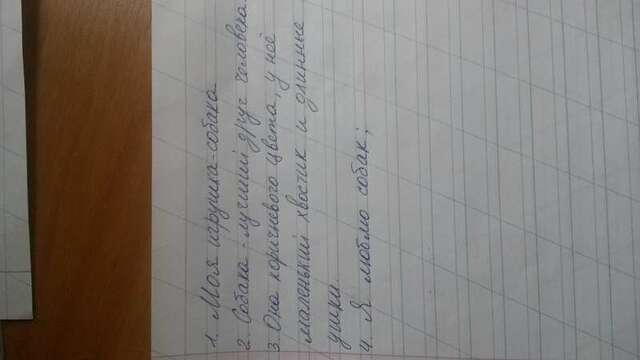 1. Моя игрушка - собака
2. Собака - лучший друг человека.
3. Она коричневого цвета, у неё
маленький хвостик и длинные
ушки.
4. Я люблю собак;